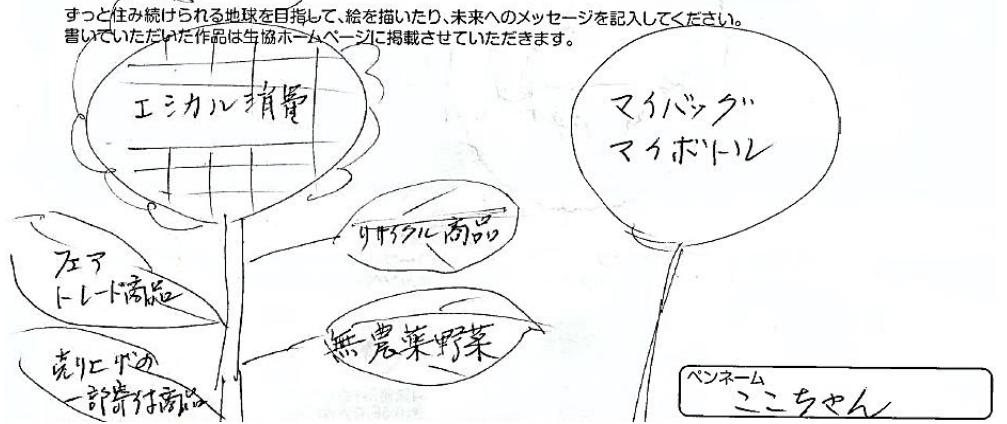 ずっと住み続けられる地球を目指して、絵を描いたり、未来へのメッセージを記入してください。
書いていただいた作品は生協ホームページに掲載させていただきます。
エシカル消費
マイバッグ
マイボトル
リサイクル商品
フェア
トレード商品
無農薬野菜
売り上げの
一部寄付商品
ペンネーム
ここちゃん